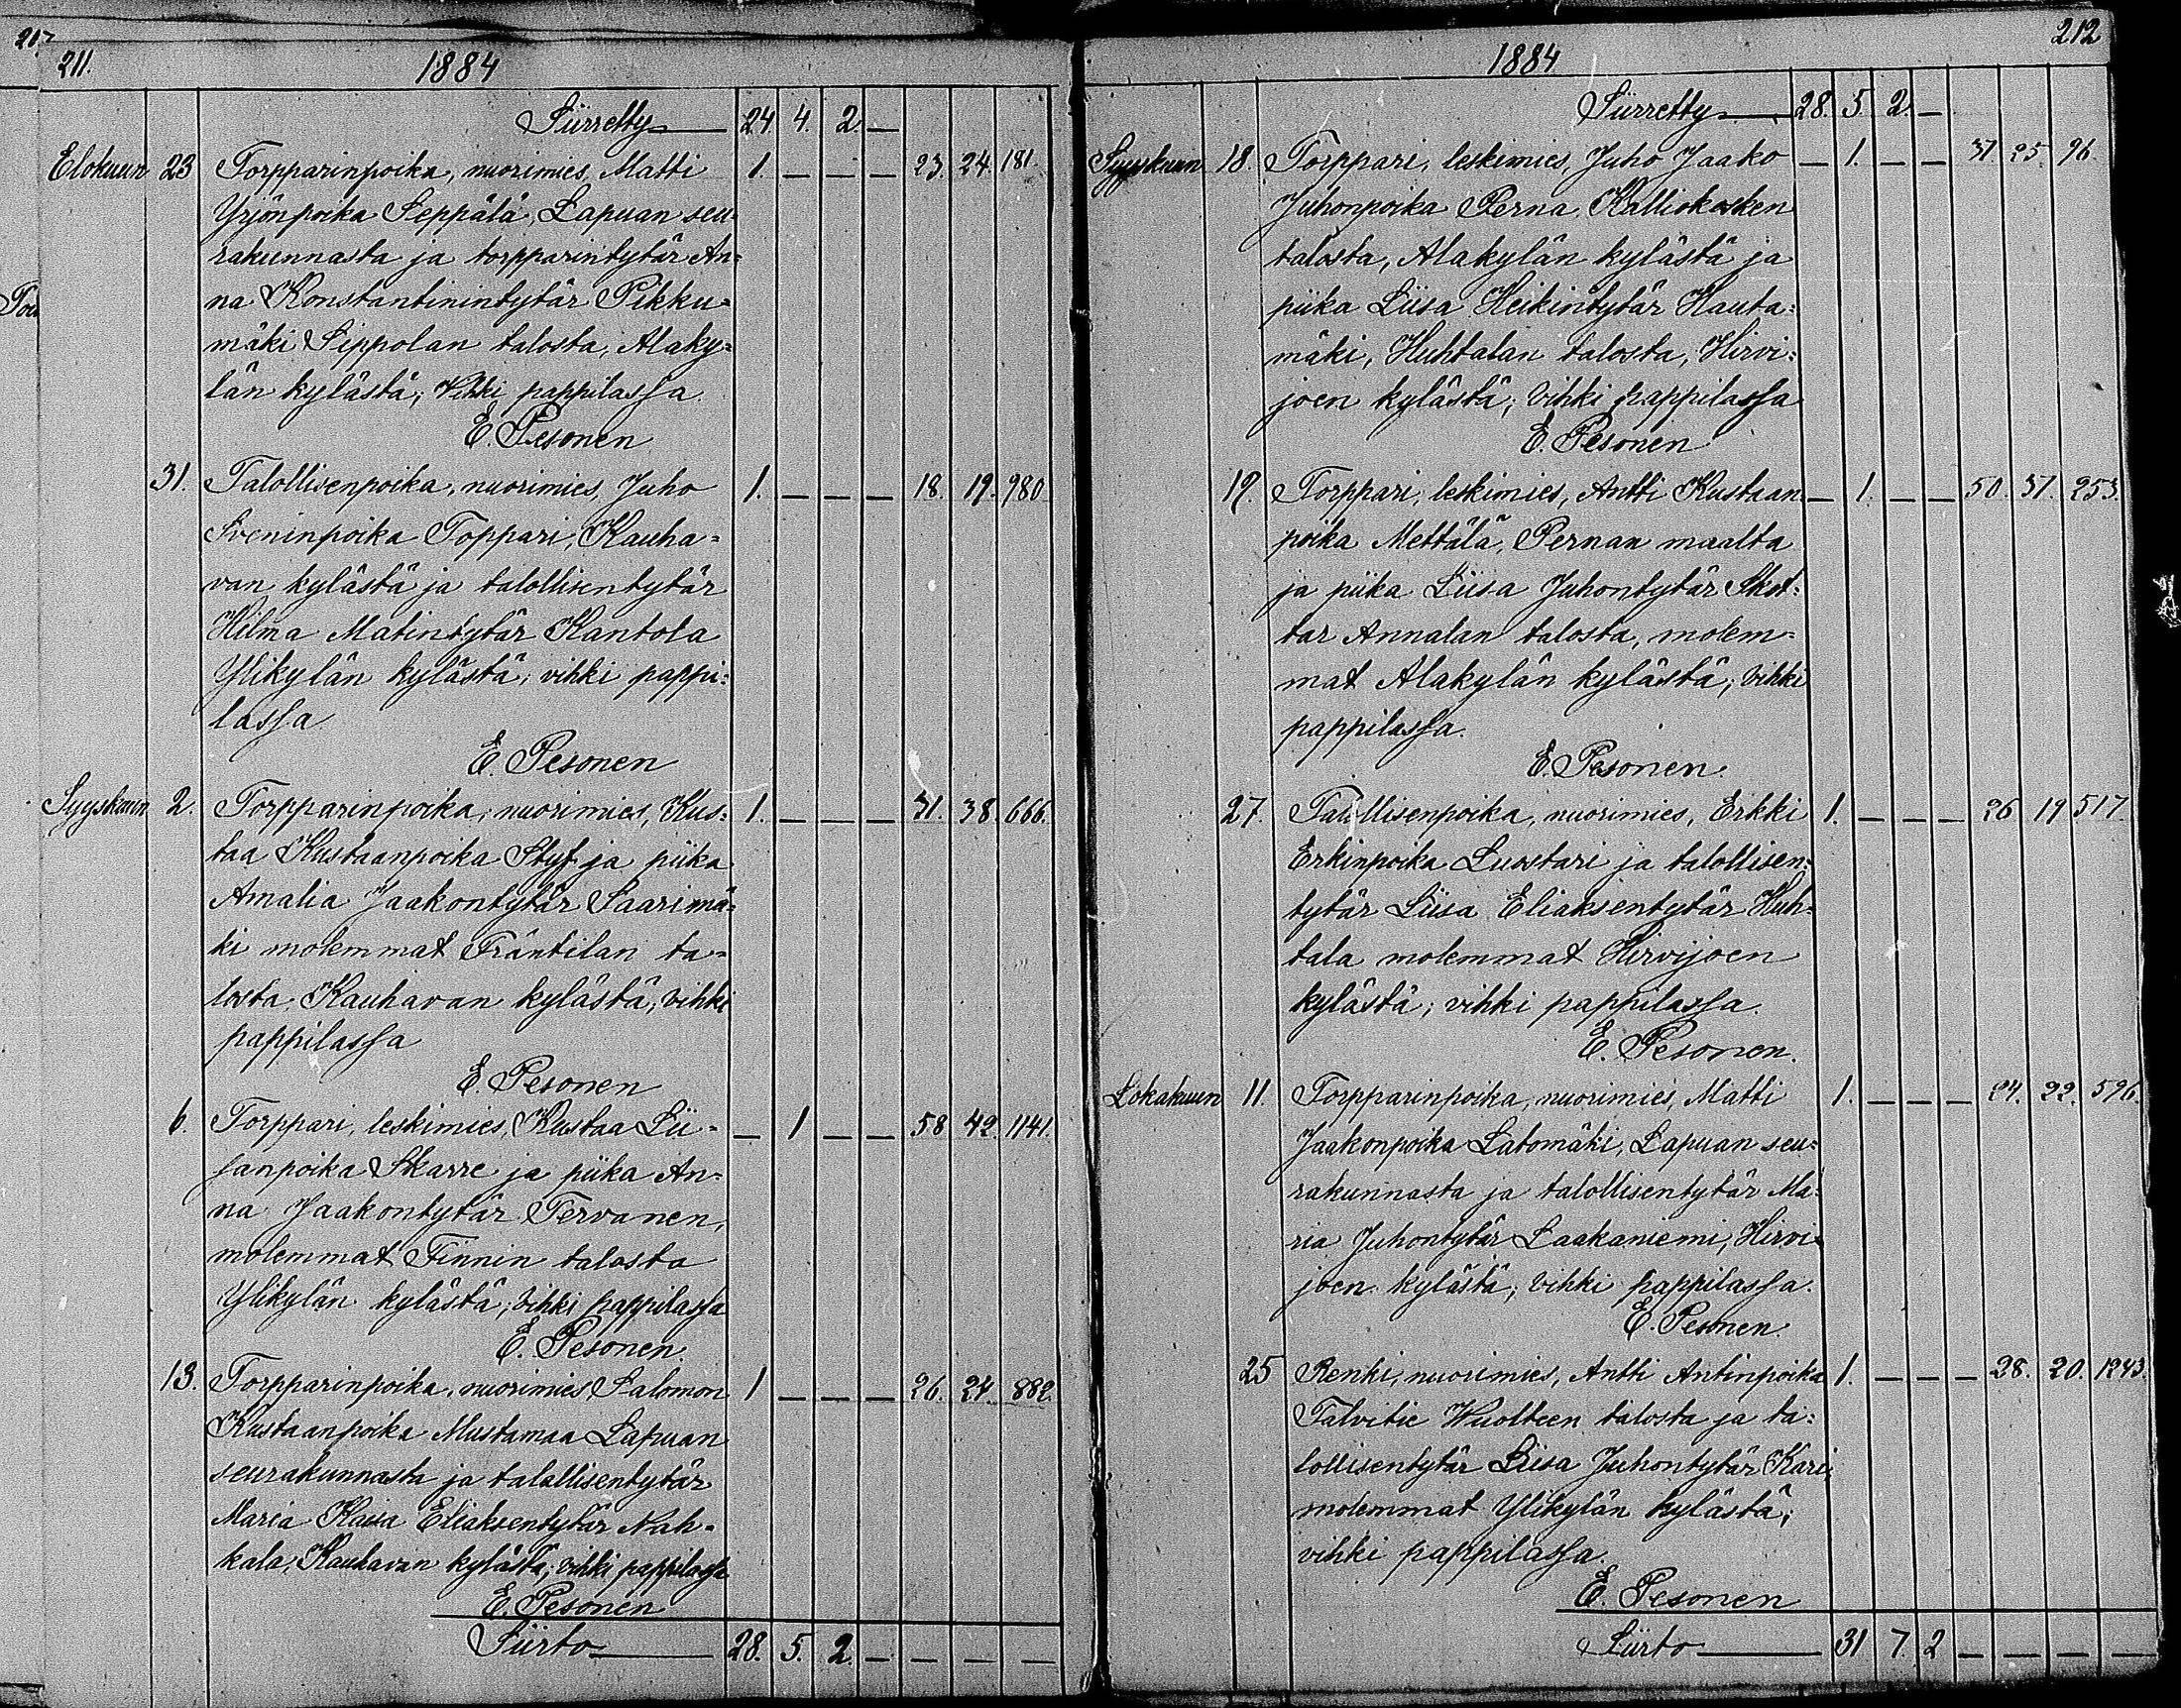 217
211.
1884
Siirretty 24. 4. 2. —
Elokuun 23 Torpparinpoika, nuorimies, Matti 1. — — — 23. 24. 181.
Yrjönpoika Seppälä, Lapuan seu=
rakunnasta ja torpparintytär An=
na Konstantinintytär Pikku=
mäki Sippolan talosta, Alaky=
län kylästä; Vihki pappilassa.
E. Pesonen
31. Talollisenpoika, nuorimies, Juho 1. — — — 18. 19. 980
Sveninpoika Toppari, Kauha=
van kylästä ja talollisentytär
Hilma Matintytär Kantola
Ylikylän kylästä; vihki pappi=
lassa.
E. Pesonen
Syyskuun 2. Torpparinpoika, nuorimies, Kus= 1. — — — 31. 38. 666.
taa Kustaanpoika Styf ja piika
Amalia Jaakontytär Saarimä=
ki molemmat Fräntilan ta=
losta, Kauhavan kylästä; vihki
pappilassa
E. Pesonen
6. Torppari, leskimies, Kustaa Lii= — 1 — — 58 42. 1141.
sanpoika Skarre ja piika An=
na Jaakontytär Tervanen,
molemmat Finnin talosta
Ylikylän kylästä; vihki pappilassa
E. Pesonen
13. Torpparinpoika, nuorimies Salomon 1 — — — 26. 24. 882.
Kustaanpoika Mustamaa Lapuan
seurakunnasta ja talollisentytär
Maria Kaisa Eliaksentytär Nah=
kala, Kauhavan kylästä; vihki pappilassa
E. Pesonen
Siirto 28. 5. 2. — — — —
212
1884
Siirretty 28. 5. 2. —
Syyskuun 18. Torppari, leskimies, Juho Jaako — 1. — — 37. 25. 96
Juhonpoika Perna, Kalliokosken
talosta, Alakylän kylästä ja
piika Liisa Heikintytär Hauta=
mäki, Huhtalan talosta, Hirvi=
joen kylästä; vihki pappilassa
E. Pesonen
19. Torppari, leskimies, Antti Kustaan — 1. — — 50. 37. 253.
poika Mettälä, Pernan maalta
ja piika Liisa Juhontytär Skot=
tar Annalan talosta, molem=
mat Alakylän kylästä; vihki
pappilassa.
E. Pesonen.
27. Talollisenpoika, nuorimies, Erkki 1. — — — 26 19 517.
Erkinpoika Luostari ja talollisen=
tytär Liisa Eliaksentytär Huh=
tala molemmat Hirvijoen
kylästä; vihki pappilassa.
E. Pesonen.
Lokakuun 11. Torpparinpoika, nuorimies, Matti 1. — — — 24. 22. 596.
Jaakonpoika Latomäki, Lapuan seu=
rakunnasta ja talollisentytär Ma=
ria Juhontytär Laakaniemi, Hirvi=
joen kylästä; vihki pappilassa.
E. Pesonen.
25 Renki, nuorimies, Antti Antinpoika 1. — — — 28. 20. 1243.
Talvitie Wuolteen talosta ja ta=
lollisentytär Liisa Juhontytär Kari;
molemmat Ylikylän kylästä;
vihki pappilassa.
E. Pesonen
Siirto 31 7. 2 — — — —